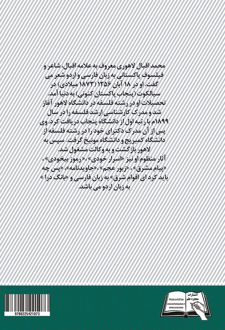 محمد اقبال لاهوری معروف به علامه اقبال، شاعر و
فیلسوف پاکستانی به زبان فارسی و اردو شعر می
گفت. او در ۱۸ آبان ۱۲۵۶ (۱۸۷۳ میلادی) در
سیالکوت (پنجاب پاکستان کنونی) به دنیا آمد.
تحصیلات او در رشته فلسفه در دانشگاه لاهور آغاز
شد و مدرک کارشناسی ارشد فلسفه را در سال
۱۸۹۹م با رتبه اول از دانشگاه پنجاب دریافت کرد. وی
پس از آن مدرک دکترای خود را در رشته فلسفه از
دانشگاه کمبریج و دانشگاه مونیخ گرفت. سپس به
لاهور بازگشت و به وکالت مشغول شد.
آثار منظوم او نیز «اسرار خودی»، «رموز بیخودی»،
«پیام مشرق»، «زبور عجم»، «جاویدنامه»، «پس چه
باید کرد ای اقوام شرق» به زبان فارسی و «بانگ درا»
به زبان اردو می باشد.